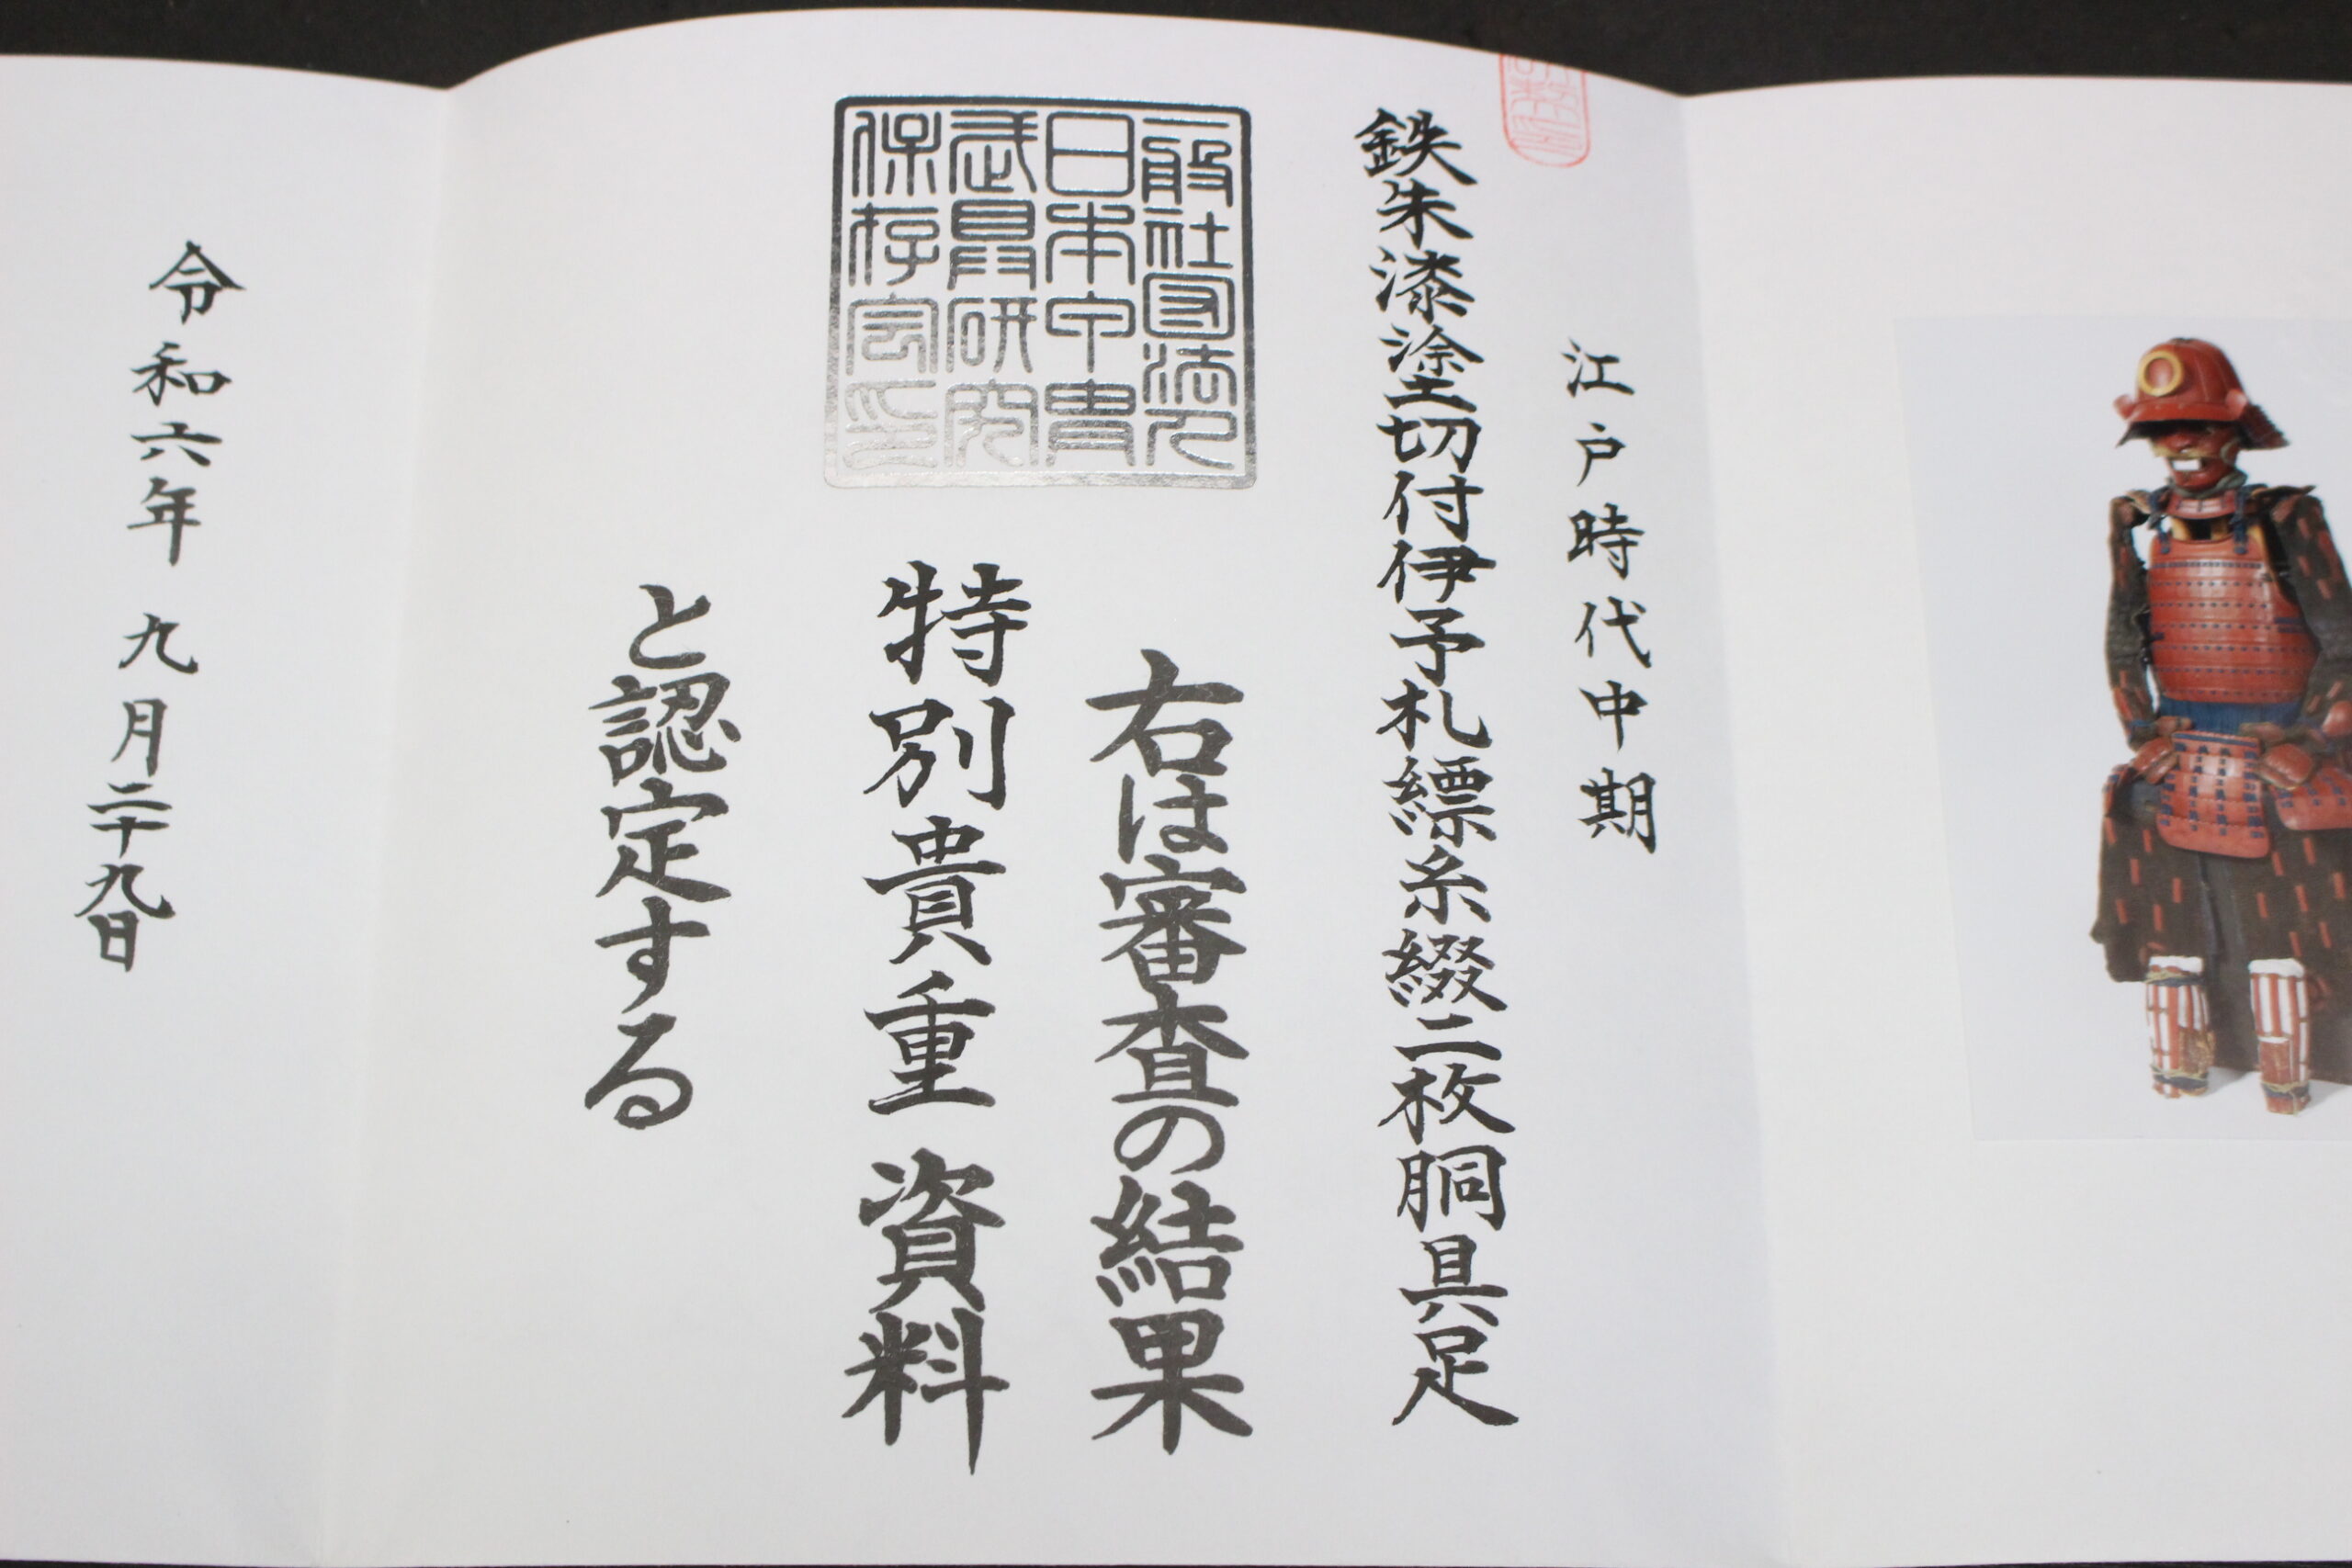 江戸時代中期
鉄朱漆塗切付伊予札縹糸綴二枚胴具足
一般社団法人
日本甲冑
武具研究
保存会印
右は審査の結果
特別貴重資料
と認定する
令和六年 九月二十九日